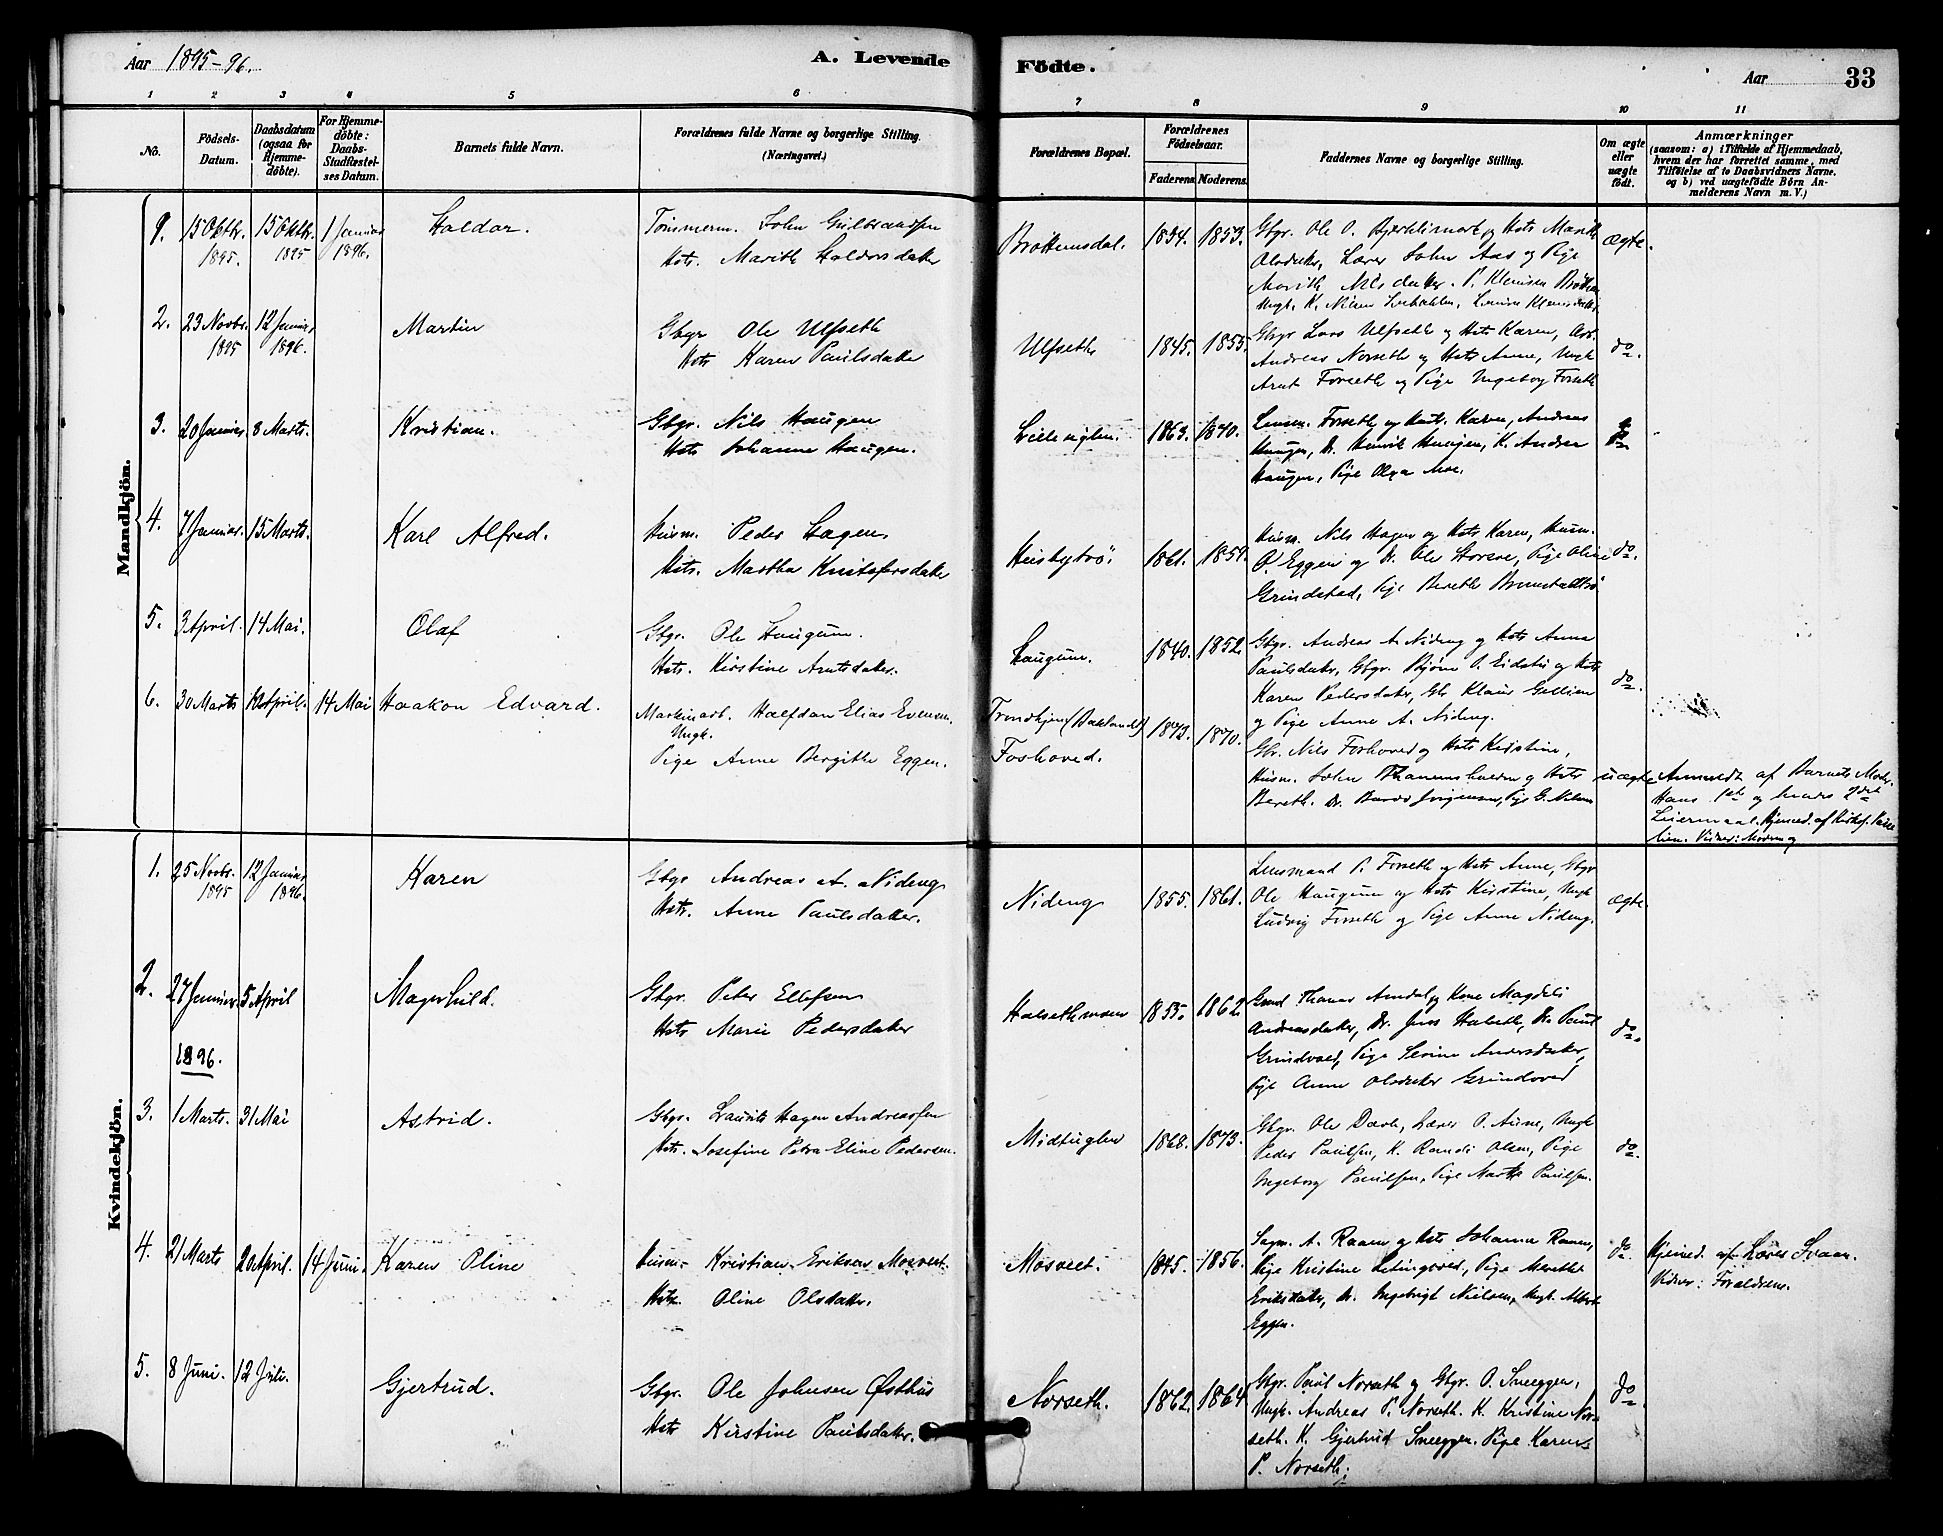 Aar 1895-96.
A. Levende
Födte.
Aar
33
1 2 3 4 5 6 7 8 9 10 11
No.
Födsels-
Datum.
Daabsdatum
(ogsaa for
Hjemme-
döbte).
For Hjemme-
döbte:
Daabs-
Stadfæstel-
ses Datum.
Barnets fulde Navn.
Forældrenes fulde Navne og borgerlige Stilling.
(Næringsvei.)
Forældrenes Bopæl.
Forældrenes
Födselsaar.
Faderens.
Moderens.
Faddernes Navne og borgerlige Stilling.
Om ægte
eller
uægte
födt.
Anmærkninger
(saasom: a) i Tilfælde af Hjemmedaab,
hvem der har forrettet samme, med
Tilföielse af to Daabsvidners Navne,
og b) ved uægtefödte Börn An-
melderens Navn m. V.)
Mandkjön.
1. 15 Oktbr. 1895. 15 Oktbr. 1895 1 Januar 1896. Haldor.
Tömmerm. John Gulbrandsen
Hstr. Marith Haldorsdatter
Brøttemsdal. 1834. 1853.
Gbgr. Ole O. Bjerklimark og Hstr Marith
Olsdatter, Lærer John Aas og Pige
Marith Nilsdatter. P. Klausen Brøttem
ægte.
2. 23 Novbr. 1895 12 Januar 1896. Martin
Gbgr Ole Ulfseth
Hstr Karen Paulsdatter
Ulfseth 1845. 1855.
Gbgr Lars Ulfseth og Hstr Karen, Arb.
Andreas Norseth og Hstr Anne, Ungk
Arnt Forseth og Pige Ingeborg Forseth
do.
3. 20 Januar. 8 Marts. Kristian.
Gbgr. Nils Haugen
Hstr Johanne Haugen.
Lilleuglen. 1863. 1870.
Lensm. Forseth og Hstr. Karen, Andreas
Haugen, Dr. Henrik Haugen, K. Andrea
Haugen, Pige Olga Moe.
do
4. 7 Januar. 15 Marts. Karl Alfred.
Husm. Peder Hagen
Hstr. Martha Kristofersdatter
Husbytrø. 1861. 1857.
Husm. Nils Hagen og Hstr Karen, Husm.
P. Eggen og Dr. Ole Storene, Pige Oline
Grindstad, Pige Bereth
do.
5. 3 April. 14 Mai. Olaf
Gbgr. Ole Haugum.
Hstr. Kirstine Arntsdatter.
Haugum. 1840. 1852.
Gbgr. Andreas A. Nideng og Hstr Anna
Paulsdatter, Gbgr. Bjørn O. Eidstu og Hstr
Karen Pedersdatter, Gbr Klaus Gellien
og Pige Anne A. Nideng.
do.
6. 30 Marts 10 April. 14 Mai Haakon Edvard.
Maskinarb. Halfdan Elias Evensen.
Ungk.
Pige Anne Bergitte Eggen.
Trondhjem (Baklandet)
Foshoved.
1873. 1870.
Gbr. Nils Foshoved og Hstr Kirstine,
Husm. John Thanemshalden og Hstr
Bereth. Dr. Bardo Jørgensen, Pige G. Nilsen
uægte
Anmeldt af Barnets Moder.
Hans 1ste og hendes 2det
Leiermaal. Hjemmed. af Kirkes.
Vidner: Moderen og
Kvindekjön.
1. 25 Novbr. 1895 12 Januar 1896. Karen
Gbgr Andreas A. Nideng
Hstr. Anne Paulsdatter.
Nideng 1855. 1861.
Lensmand P. Forseth og Hstr Anne, Gbgr
Ole Haugum og Hstr Kirstine, Ungk
Ludvig Forseth og Pige Anne Nideng.
ægte.
2. 27 Januar 1896. 5 April Magnhild.
Gbgr. Peter Ellefsen
Hstr Marie Pedersdatter
Halsethmoen 1855. 1862.
Gmd Thomas Amdal og Kone Magdeli
Andreasdatter, Dr. Jens Halseth, Dr. Paul
Grindvoed, Pige Serine Andersdatter,
Pige Anne Olsdatter Grindvoed
do.
3. 1 Marts. 31 Mai Astrid.
Gbgr. Laurits Hagen Andreassen
Hstr. Josefine Petra Eline Pedersen.
Midtuglen 1868. 1873.
Gbgr. Ole Dørli, Lærer O. Aune, Ungk
Peder Paulsen, K. Randi Olsen, Pige
Ingeborg Paulsen, Pige Martha Paulsen.
do.
4. 21 Marts 20 April. 14 Juni. Karen Oline
Husm. Kristian Eriksen Mosveet.
Hstr. Oline Olsdatter.
Mosveet. 1845. 1856.
Sagm. A. Raaen og Hstr Johanna Raaen,
Pige Kristine Letingsved, Pige Merethe
Eriksdatter, Dr. Ingebrigt Nielsen, Ungk. Albert
Eggen.
do.
Hjemmed. af Lærer Svaan.
Vidner: Forældrene.
5. 8 Juni. 12 Juli. Gjertrud.
Gbgr. Ole Johnsen Østhus
Hstr Kirstine Paulsdatter.
Norseth. 1862. 1864
Gbgr. Paul Norseth og Gbgr. O. Sneeggen,
Ungk. Andreas P. Norseth. K. Kristine Nor-
seth. K. Gjertrud Sneeggen. Pige Karen
P. Norseth.
do.